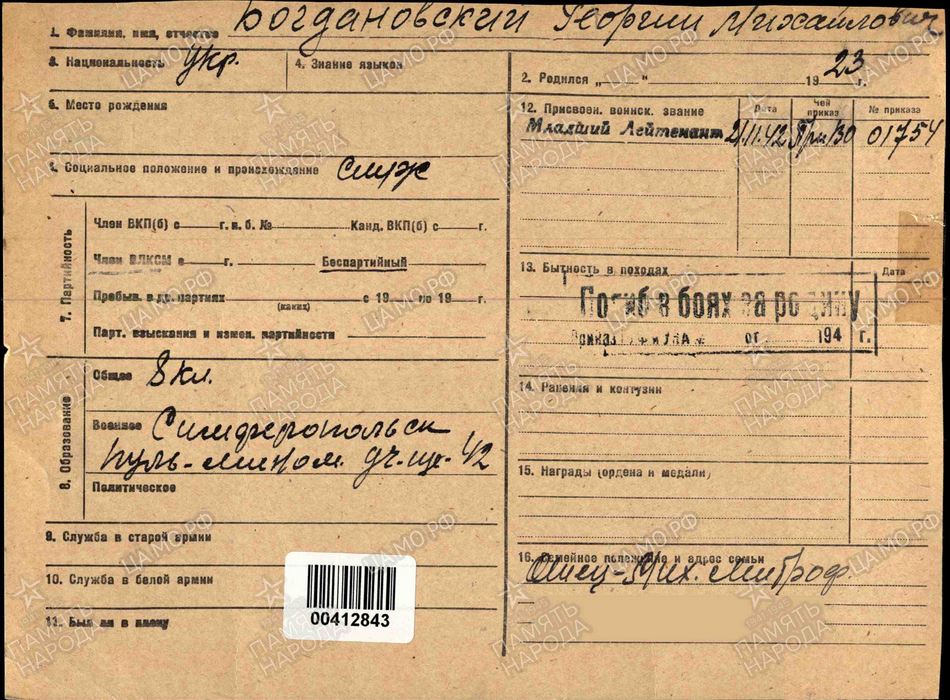 1. Фамилия, имя, отчество Богдановский Георгий Михайлович
3. Национальность Укр.
4. Знание языков
2. Родился „ “ 1923 г.
5. Место рождения
6. Социальное положение и происхождение служ
7. Партийность
Член ВКП(б) с г. п. б. № Канд. ВКП(б) с г.
Член ВЛКСМ с г. Беспартийный
Пребыв. в др. партиях с 19 по 19 г.
(каких)
Парт. взыскания и измен. партийности
8. Образование
Общее 8 кл.
Военное Симферопольск
пуль-мином. уч-ще-42
Политическое
9. Служба в старой армии
10. Служба в белой армии
11. Был ли в плену
00412843
12. Присвоен. воинск. звание Дата Чей приказ № приказа
Младший Лейтенант 21.11.42 01754
13. Бытность в походах Дата
Погиб в боях за родину
Приказ № от 194 г.
14. Ранения и контузии
15. Награды (ордена и медали)
16. Семейное положение и адрес семьи
Отец-Мих. Митроф.
ПАМЯТЬ НАРОДА
ЦАМО.РФ